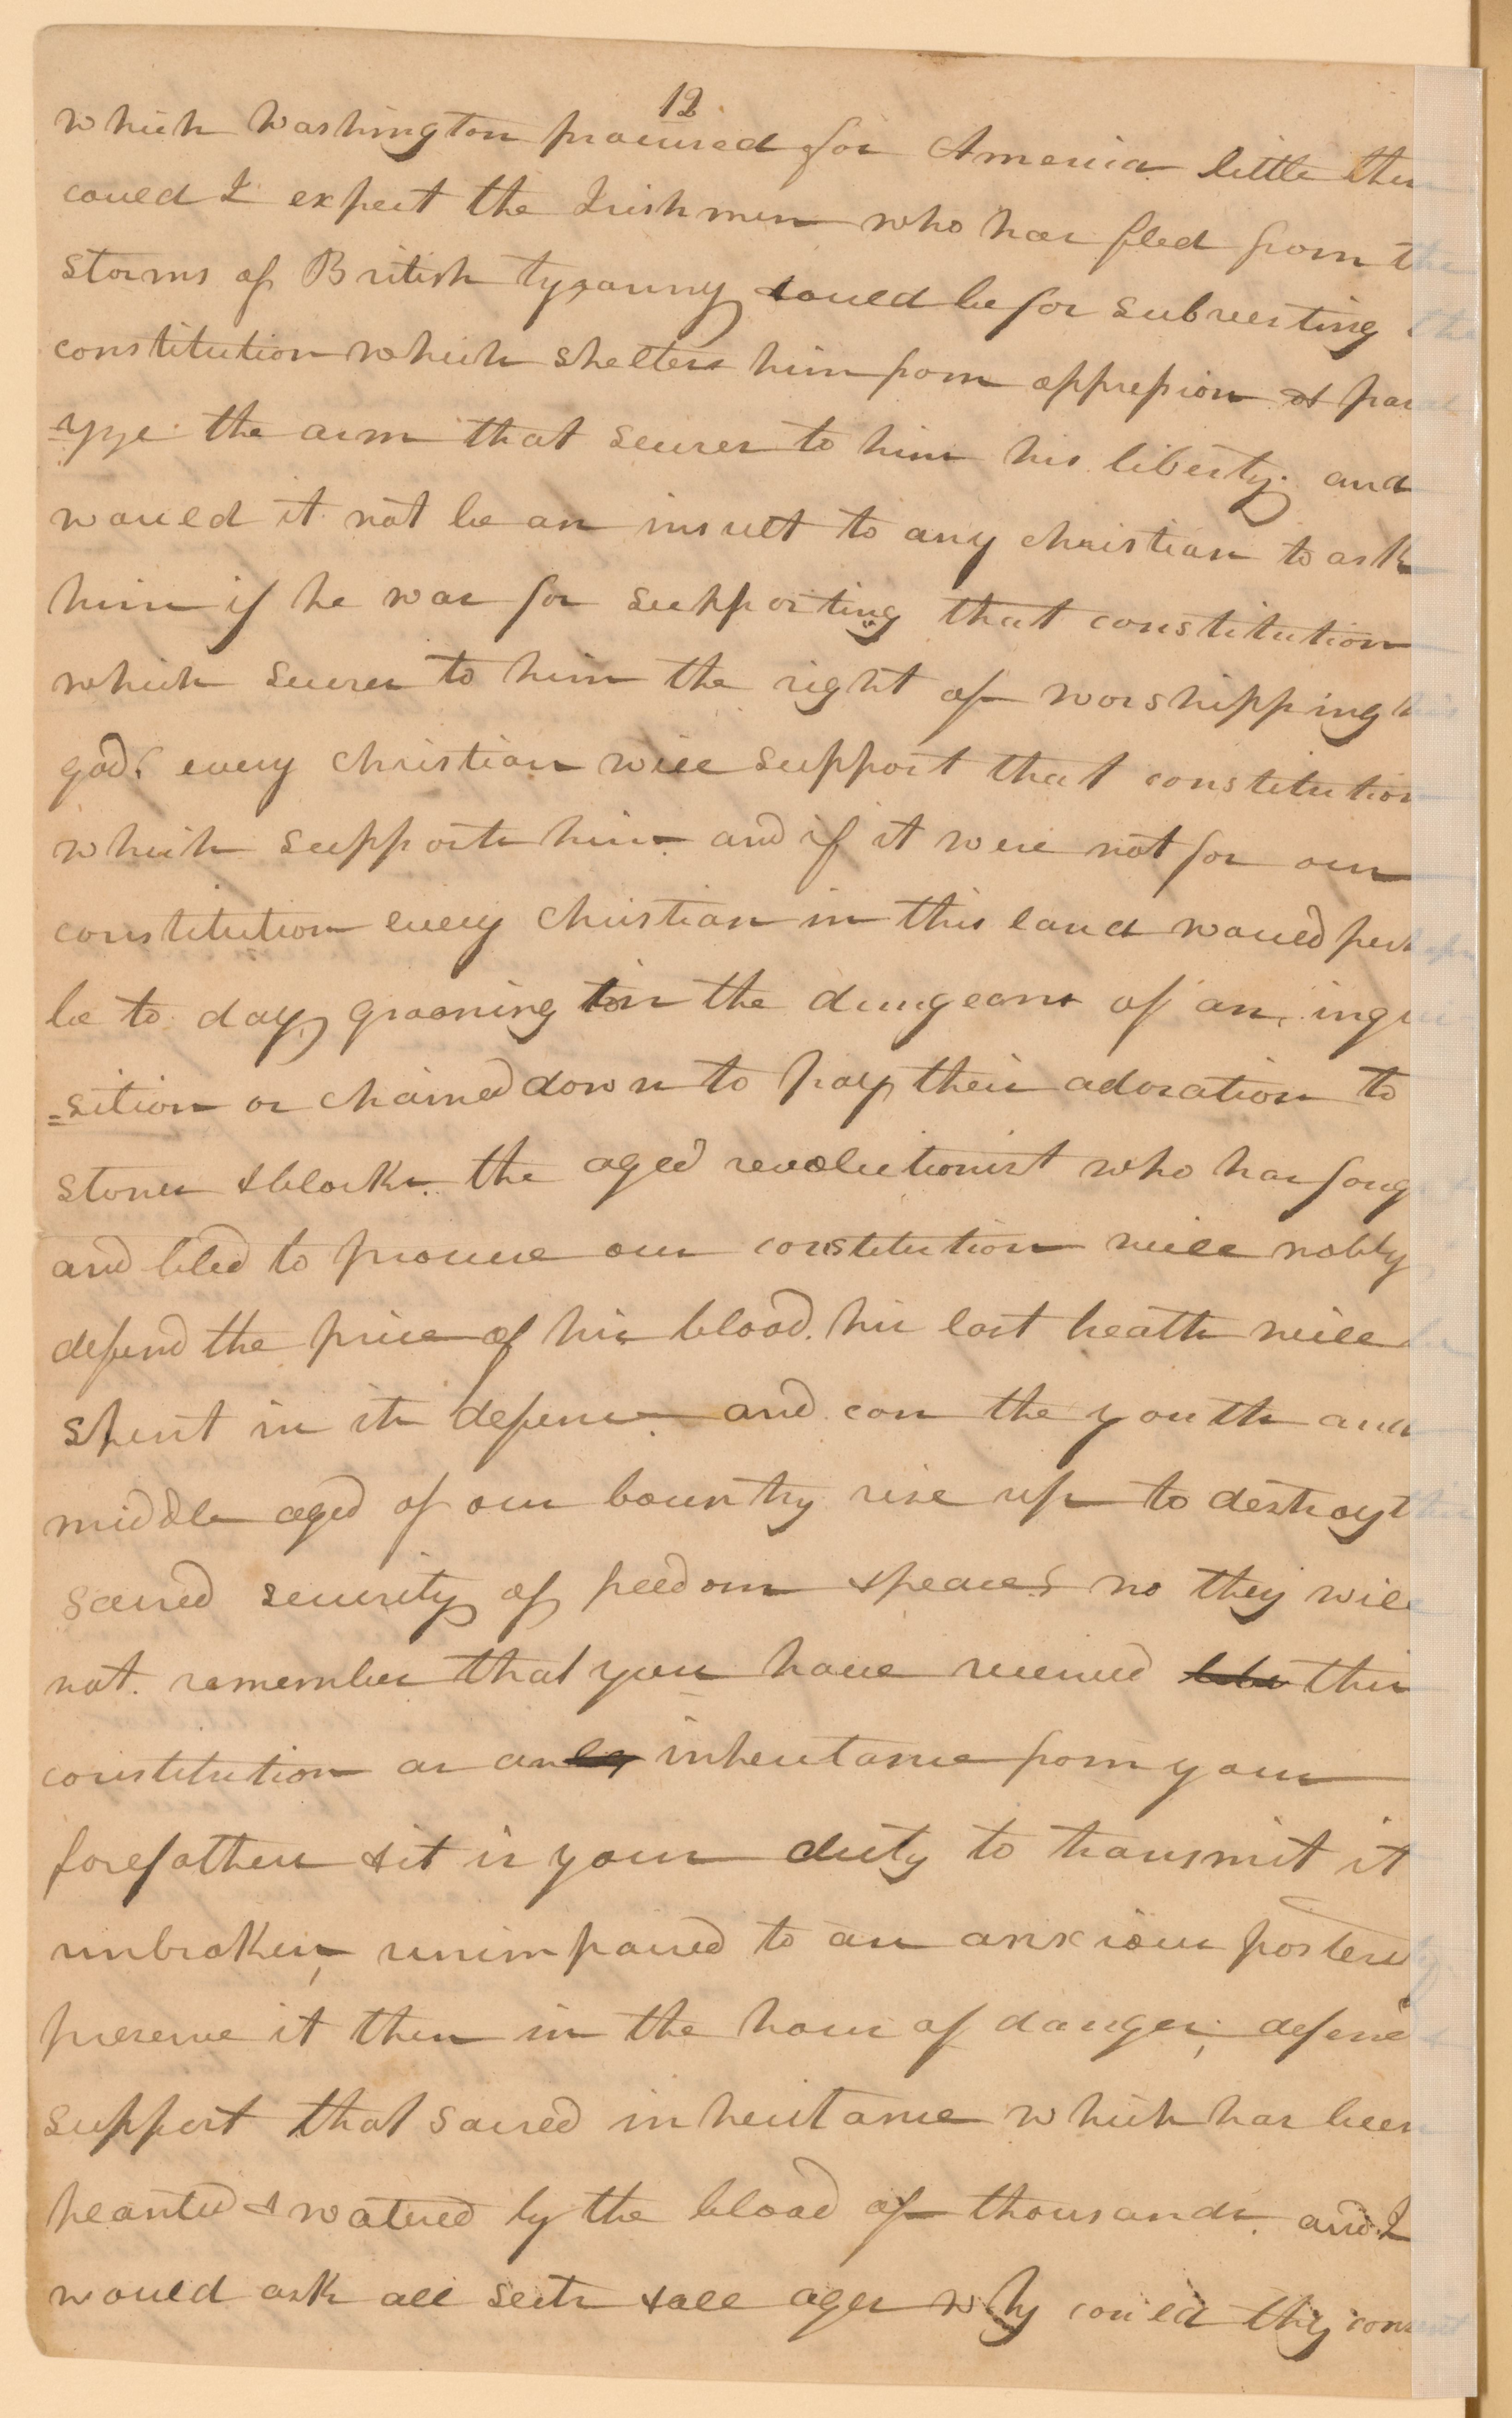 12
which Washington procured for America little then
could I expect the Irishmen who has fled from the
storms of British tyranny could be for subverting the
constitution which shelters him from oppression & paral
=yze the arm that secures to him his liberty. and
would it not be an insult to any christian to ask
him if he was for supporting that constitution
which secures to him the right of worshipping his
god? every christian will support that constitution
which supports him. and if it were not for our
constitution every Christian in this land would perhaps
be to day groaning in the dungeons of an inqui
=sition or chained down to pay their adoration to
stones & blocks. the aged revolutionist who has fought
and bled to procure our constitution will nobly
defend the price of his blood. his last breath will be
spent in its defence and can the youth and
middle aged of our country rise up to destroy this
sacred security of freedom & peace? no they will
not. remember that you have received this
constitution as an inheritance from your
forefathers & it is your duty to transmit it
unbroken, unimpaired to an anxious posterity
preserve it then in the hour of danger; defend
support that sacred inheritance which has been
planted & watered by the blood of thousands. and I
would ask all sects & all ages why could they consent